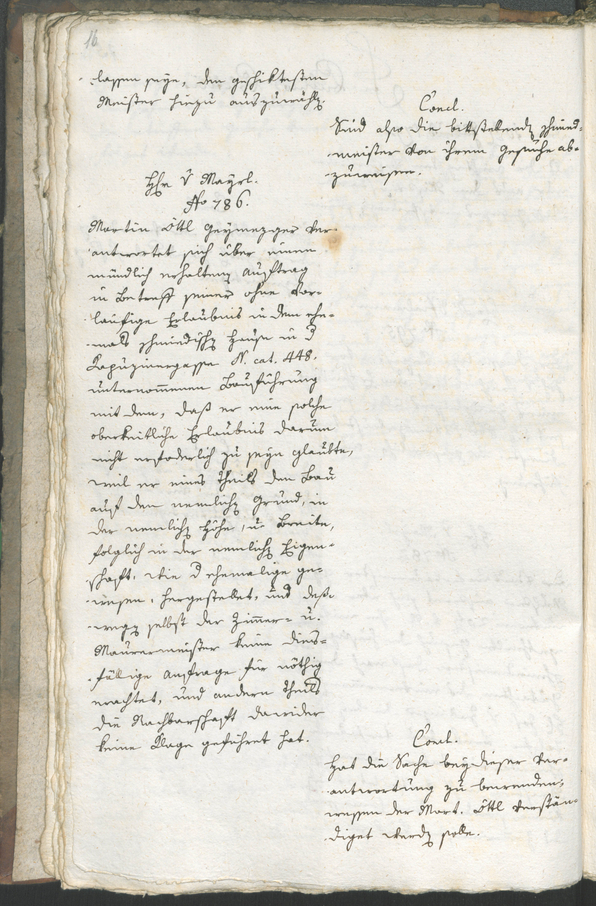 16
lassen seye, den geschiktesten
Meister hiezu auszuwählen.
Concl.
Sind also die bittstellenden schmied-
meister von ihrem Gesuche ab-
zuweisen.
Hr. v Mayrl.
No 786.
Martin Öttl Geymezger ver-
antwortet sich über einen
mündlich erhaltenen Auftrag
in Betreff seiner ohne vor-
läufige Erlaubnis in dem ehe-
mals schmiedischen Hause in d
Kapuzinergasse N. cat. 448.
unternommenen Bauführung
mit dem, daß er eine solche
oberkeitliche Erlaubnis darum
nicht erforderlich zu seyn glaubte,
weil er eines Theils den Bau
auf dem nemlichen Grund, in
der nemlichen Höhe, u. Breite,
folglich in der nemlichen Eigen-
schaft, wie d ehemalige ge-
wesen, hergestellet, und deß-
wegen selbst der Zimmer- u.
Maurermeister keine dies-
fällige Anfrage für nöthig
erachtet, und andern Theils
die Nachbarschaft dawider
keine Klage geführet hat.
Concl.
Hat die Sache bey dieser Ver-
antwortung zu bewenden,
wessen der Mart. Öttl verstän-
diget werden solle.